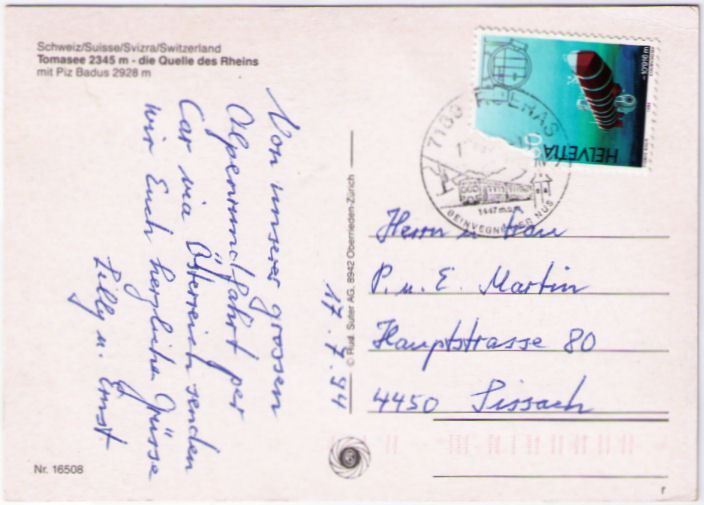 Schweiz/Suisse/Svizra/Switzerland
Tomasee 2345 m - die Quelle des Rheins
mit Piz Badus 2928 m
Von unserer grossen
Alpenrundfahrt per
Car via Österreich senden
wir Euch herzliche Grüsse
Lilly u. Ernst.
17.7.94
Nr. 16508
© Rud. Suter AG, 8942 Oberrieden-Zürich
HELVETIA
BEINVEGNI
NUS
1447 m.ü.m
Herrn u. Frau
P. u. E. Martin
Hauptstrasse 80
4450 Sissach